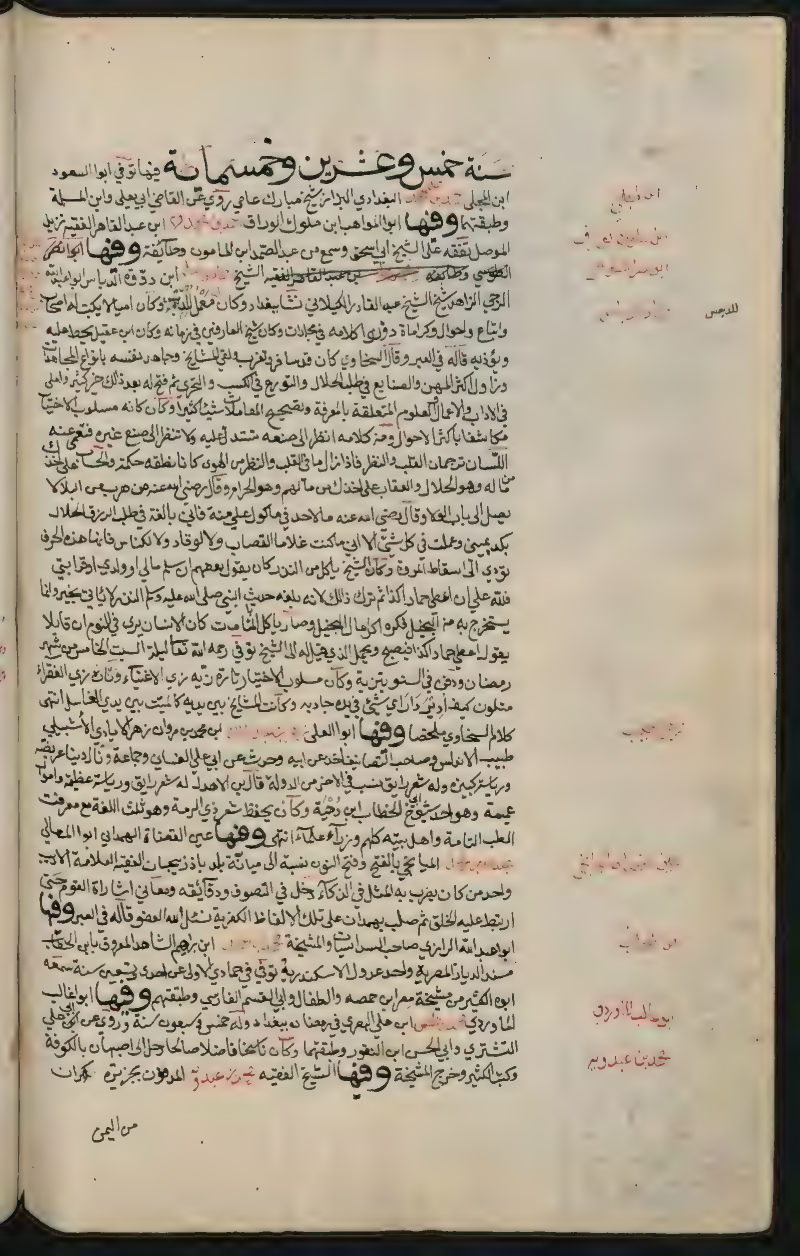 سنة خمس وعشرين وخمسمائة فيها توفي ابوا السعود
ابن المجلي البغدادي البزاز شيخ مبارك عامي روى عن القاضي ابي يعلى وابن المسلمة
وطبقتهما وفيها ابوا المواهب ابن ملوك الوراق ابن عبد القاهر الفقيه نزيل
الموصل تفقه على الشيخ ابي اسحق وسمع من عبد الصمد ابن المامون وطايفة وفيها ابوا نصر
الطوسي الفقيه الشيخ ابن دووة الدباس ابوا عبد الله
الرحبي الزاهد شيخ الشيخ عبد القادر الجيلاني نشا ببغداد وكان وكان اميا لا يكتب له اصحاب
واتباع واحوال وكرامات دونوا كلامه في مجلدات وكان شيخ العارفين في زمانه وكان ابن عقيل يحط عليه
ويؤذيه قاله في العبر وقال السخاوي كان قد سافر وتغرب ولقي المشايخ وجاهد نفسه بانواع المجاهدات
وزاول اكثر المهن والصنايع في طلب الحلال والتورع في الكسب والتحري ثم فتح له بعد ذلك خير كثير واملى
في الاداب والاعمال والعلوم المتعلقة بالمعرفة وتصحيح المعاملات شيئا كثيرا وكان كانه مسلوب الاختيار
مكاشفا باكثر الاحوال ومن كلامه انظر الى صنعه تستدل عليه ولا تنظر الى صنع غيره فتعمى عنه
اللسان ترجمان القلب والنظر فاذا زال ما في القلب والنظر من الهوى كان نطقه حكمة والحساب على اخذك
من ماله وهو الحلال والعقاب على اخذك من مالهم وهو الحرام وقال رضي الله عنه من هرب من البلا لا
يصل الى باب الولا وقال رضي الله عنه ما لاحد في ماكول علي منة فاني بالغت في طلب الرزق الحلال
بكد يميني وعملت في كل شي الا اني ما كنت غلاما لقصاب ولا لوقاد ولا لكناس فانما هذه الحرف
تؤدي الى اسقاط المروة وكان الشيخ ياكل من النذر كان يقول بعضهم ان سلم مالي او ولدي او قرابتي
فلله علي ان اعطي حماد كذا ثم ترك ذلك لانه بلغه حديث النبي صلى الله عليه وسلم النذر لا ياتي بخير وانما
يستخرج به من البخيل فكره اكل مال البخيل وصار ياكل المنامات كان الانسان يرى في النوم ان قايلا
يقول اعط حماد كذا فيصبح ويحمل الذي قيل له الى الشيخ توفي رحمه الله تعالى ليلة السبت الخامس من شهر
رمضان ودفن في الشونيزية وكان مسلوب الاختيار تارة زيه زي الاغنياء وتارة زي الفقراء
متلون كيف ادير دار اي شي في يده جاد به وكانت المشايخ بين يديه كالميت بين يدي الغاسل انتهى
كلام السخاوي ملخصا وفيها ابوا العلى ابن محمد بن مروان زهر الايادي الاشبيلي
طبيب الاندلس وصاحب التصانيف اخذ عن ابيه وحدث عن ابي علي الغساني وجماعة ونال دنيا عريضة
ورياسة كبيرة وله شعر رايق نكب في الاخر من الدولة قال ابن الاهدل له شعر رايق ورياسة عظيمة واموال
عميمة وهو احد شيوخ ابي الخطاب ابن دحية وكان يحفظ شعر ذي الرمة وهو ثلث اللغة مع معرفة
الطب التامة واهل بيته كلهم وزراء علماء انتهى وفيها عين القضاة الهمداني ابوا المعالي
الميانجي بالفتح وفتح النون نسبة الى ميانة بلد باذربيجان الفقيه العلامة الاديب
واحد من كان يضرب به المثل في الذكاء دخل في التصوف ودقائقه ومعاني اشارات القوم حتى
ارتبط عليه الخلق ثم صلب بهمدان على تلك الالفاظ الكفرية نسئل الله العفو قاله في العبر وفيها
ابوا عبد الله الرازي صاحب السداسيات والمشيخة ابن ابرهيم الشاهد المعروف بابن الحطاب
مسند الديار المصرية واحد عدول الاسكندرية توفي في جمادي الاولى عن احدى وتسعين سنة سمعه
ابوه الكثير من مشيخة مصر ابن حمصه والطفال وابي القسم الفارسي وطبقتهم وفيها ابوا غالب
الماوردي ابن علي البصري في رمضان ببغداد وله خمس وسبعون سنة وروى عن ابي علي
التستري وابي الحسن ابن النقور وطبقتهما وكان ناسخا فاضلا صالحا رحل الى اصبهان والكوفة
وكتب الكثير وخرج المشيخة وفيها الشيخ الفقيه محمد بن عبدويه المدفون بجزيرة كمران
من اليمن
ابوغالب الماوردي
محمد بن عبدويه